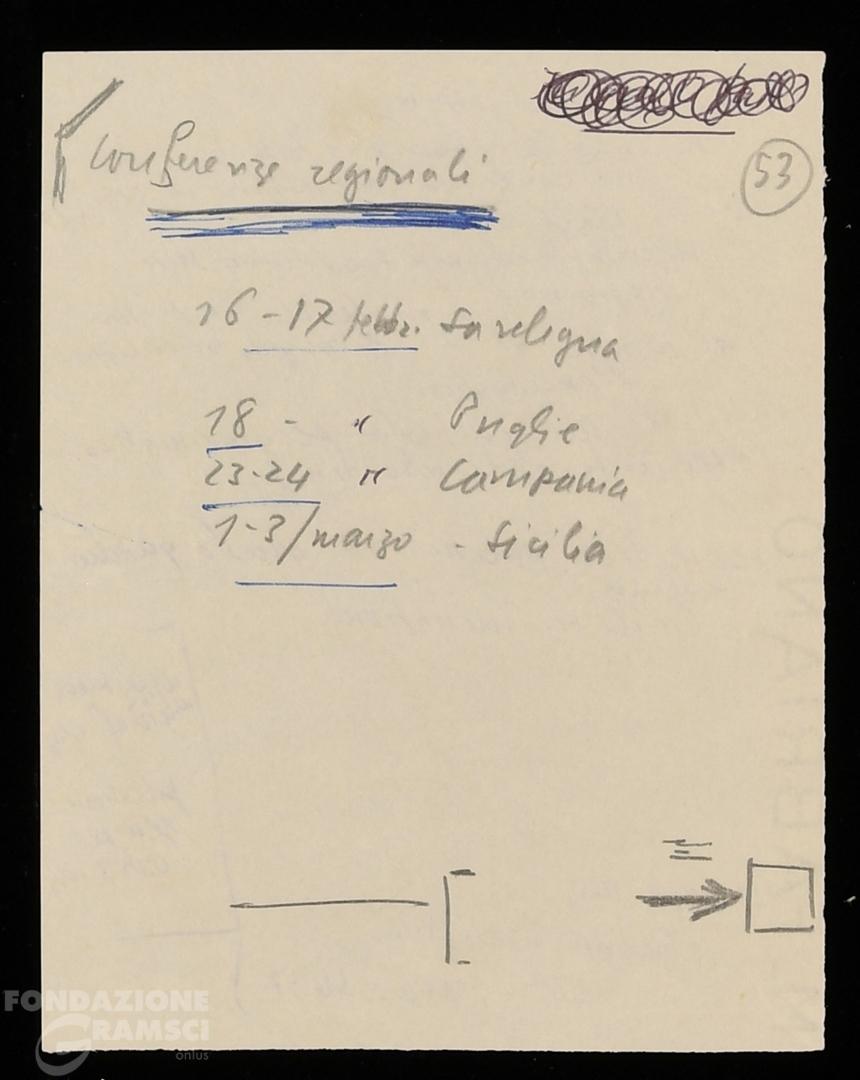 53
Conferenze regionali
16-17 febbr. Sardegna
18 - " Puglie
23-24 " Campania
1-3/marzo - Sicilia
FONDAZIONE
GRAMSCI
onlus